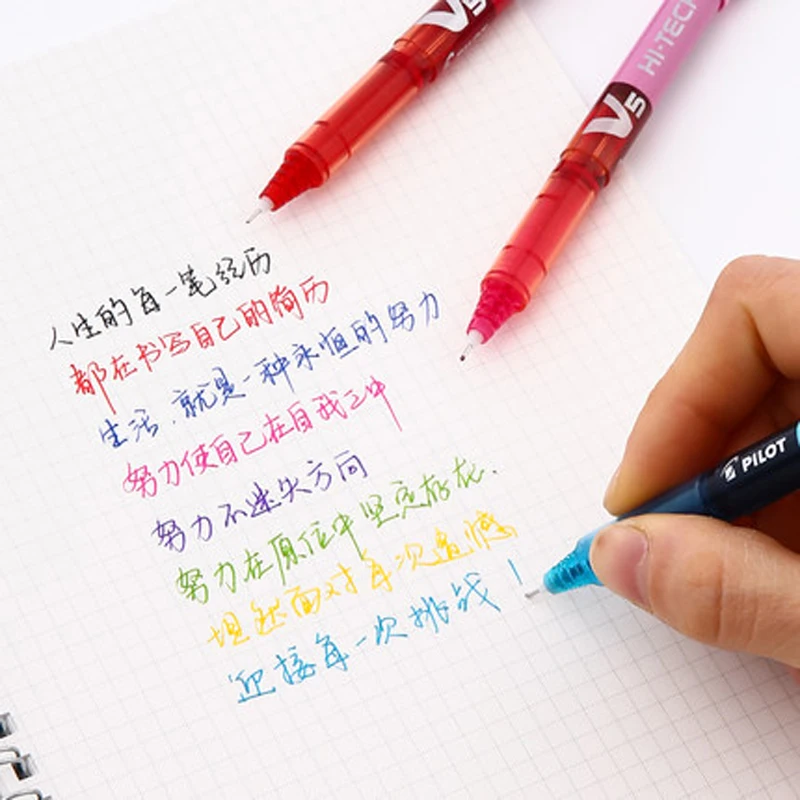 V5
V5
HI-TEC
人生的每一笔经历
都在书写自己的简历
生活.就是一种永恒的努力
努力使自己在自我之中
努力不迷失方向
努力在原位中坚定存在.
坦然面对每次遗憾
迎接每一次挑战!
PILOT